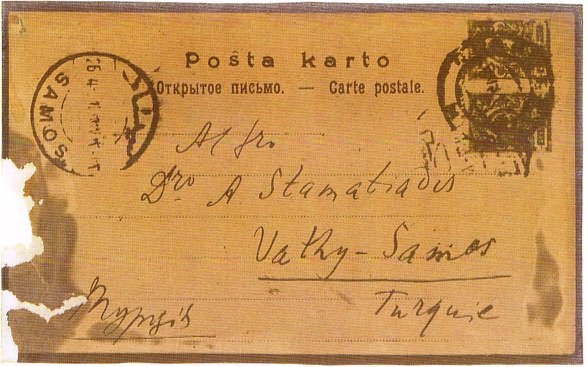 Poŝta karto
Открытое письмо. — Carte postale.
SAMOS
Al Sro
Dro A. Stamatiadis
Vathy-Samos
Turquie